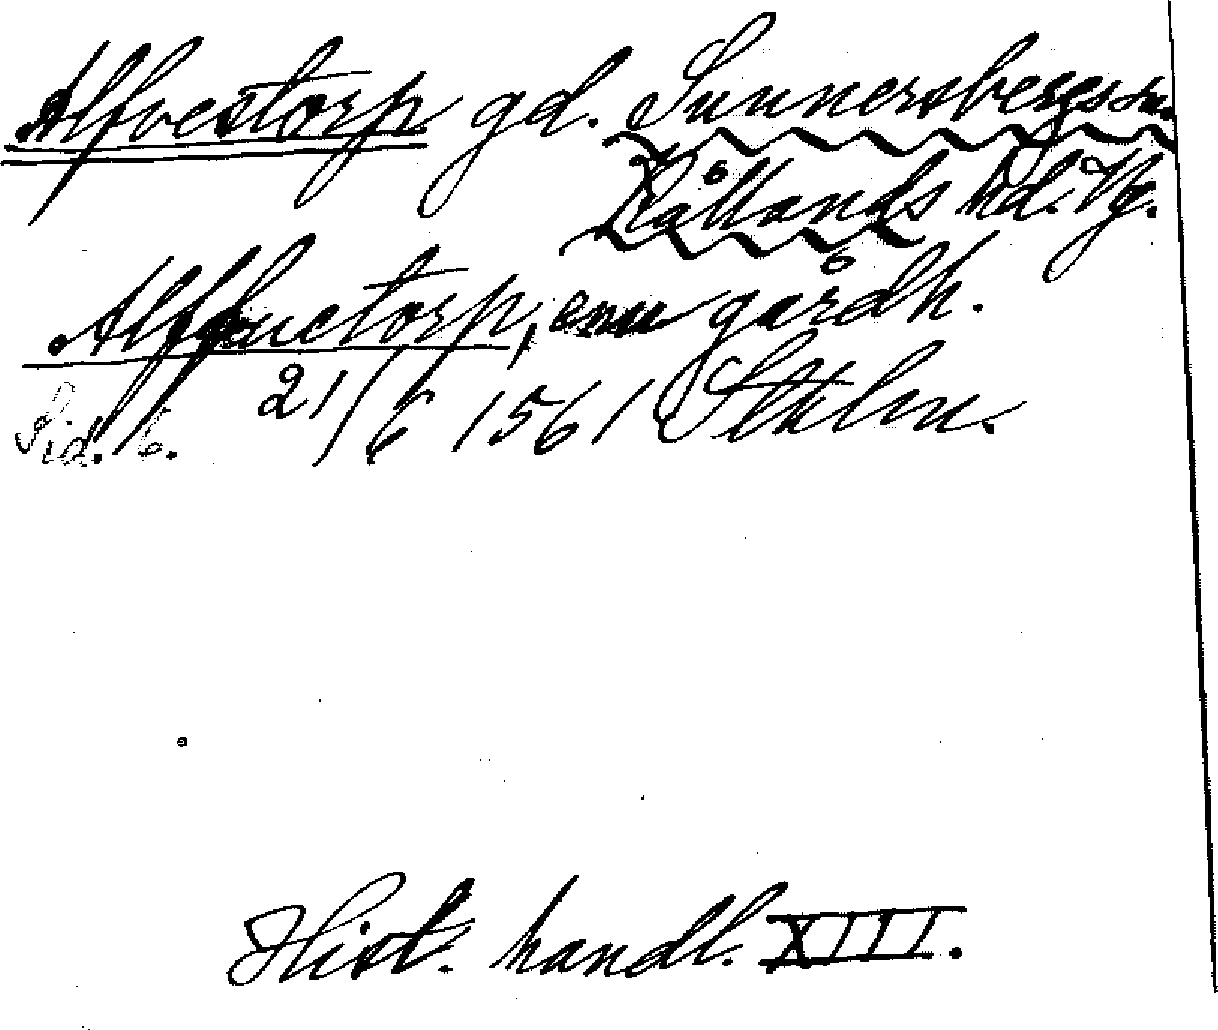 Alfvestorp gd. Sunnersbergs sn.
Kållands hd. Vg.
Alffuetorp, enn gårdh.
Sid. 6. 21/6 1561 Sthlm.
Hist. handl. XIII.